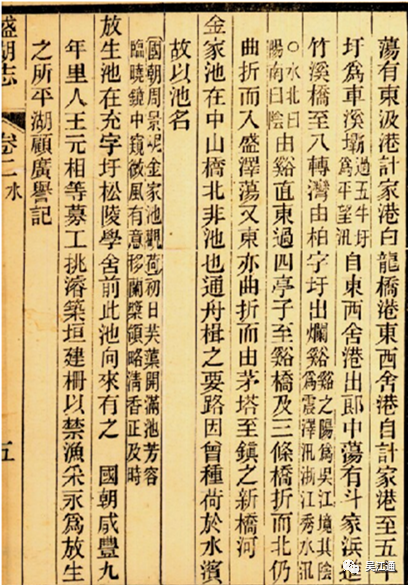 蕩有東汲港計家港白龍橋港東西舍港自計家港至五牛
圩爲車溪壩過五牛圩爲平望汛自東西舍港出郎中蕩有斗家浜進
竹溪橋至八轉灣由柏字圩出爛谿谿之陽爲吳江境其陰爲震澤汛浙江秀水汛
○水北曰陽南曰陰由谿直東過四亭子至谿橋及三條橋折而北仍
曲折而入盛澤蕩又東亦曲折而由茅塔至鎮之新橋河
金家池在中山橋北非池也通舟楫之要路因曾種荷於水濱
故以池名
國朝周景金家池觀荷初日芙蕖開滿池芳容臨曉鏡中窺微風有意移蘭槳領略清香正及時
放生池在充字圩松陵學舍前此池向來有之　國朝咸豐九
年里人王元相等募工挑濬築垣建柵以禁漁采永爲放生
之所平湖顧廣譽記
盛湖志　卷二　水　五
吴江通